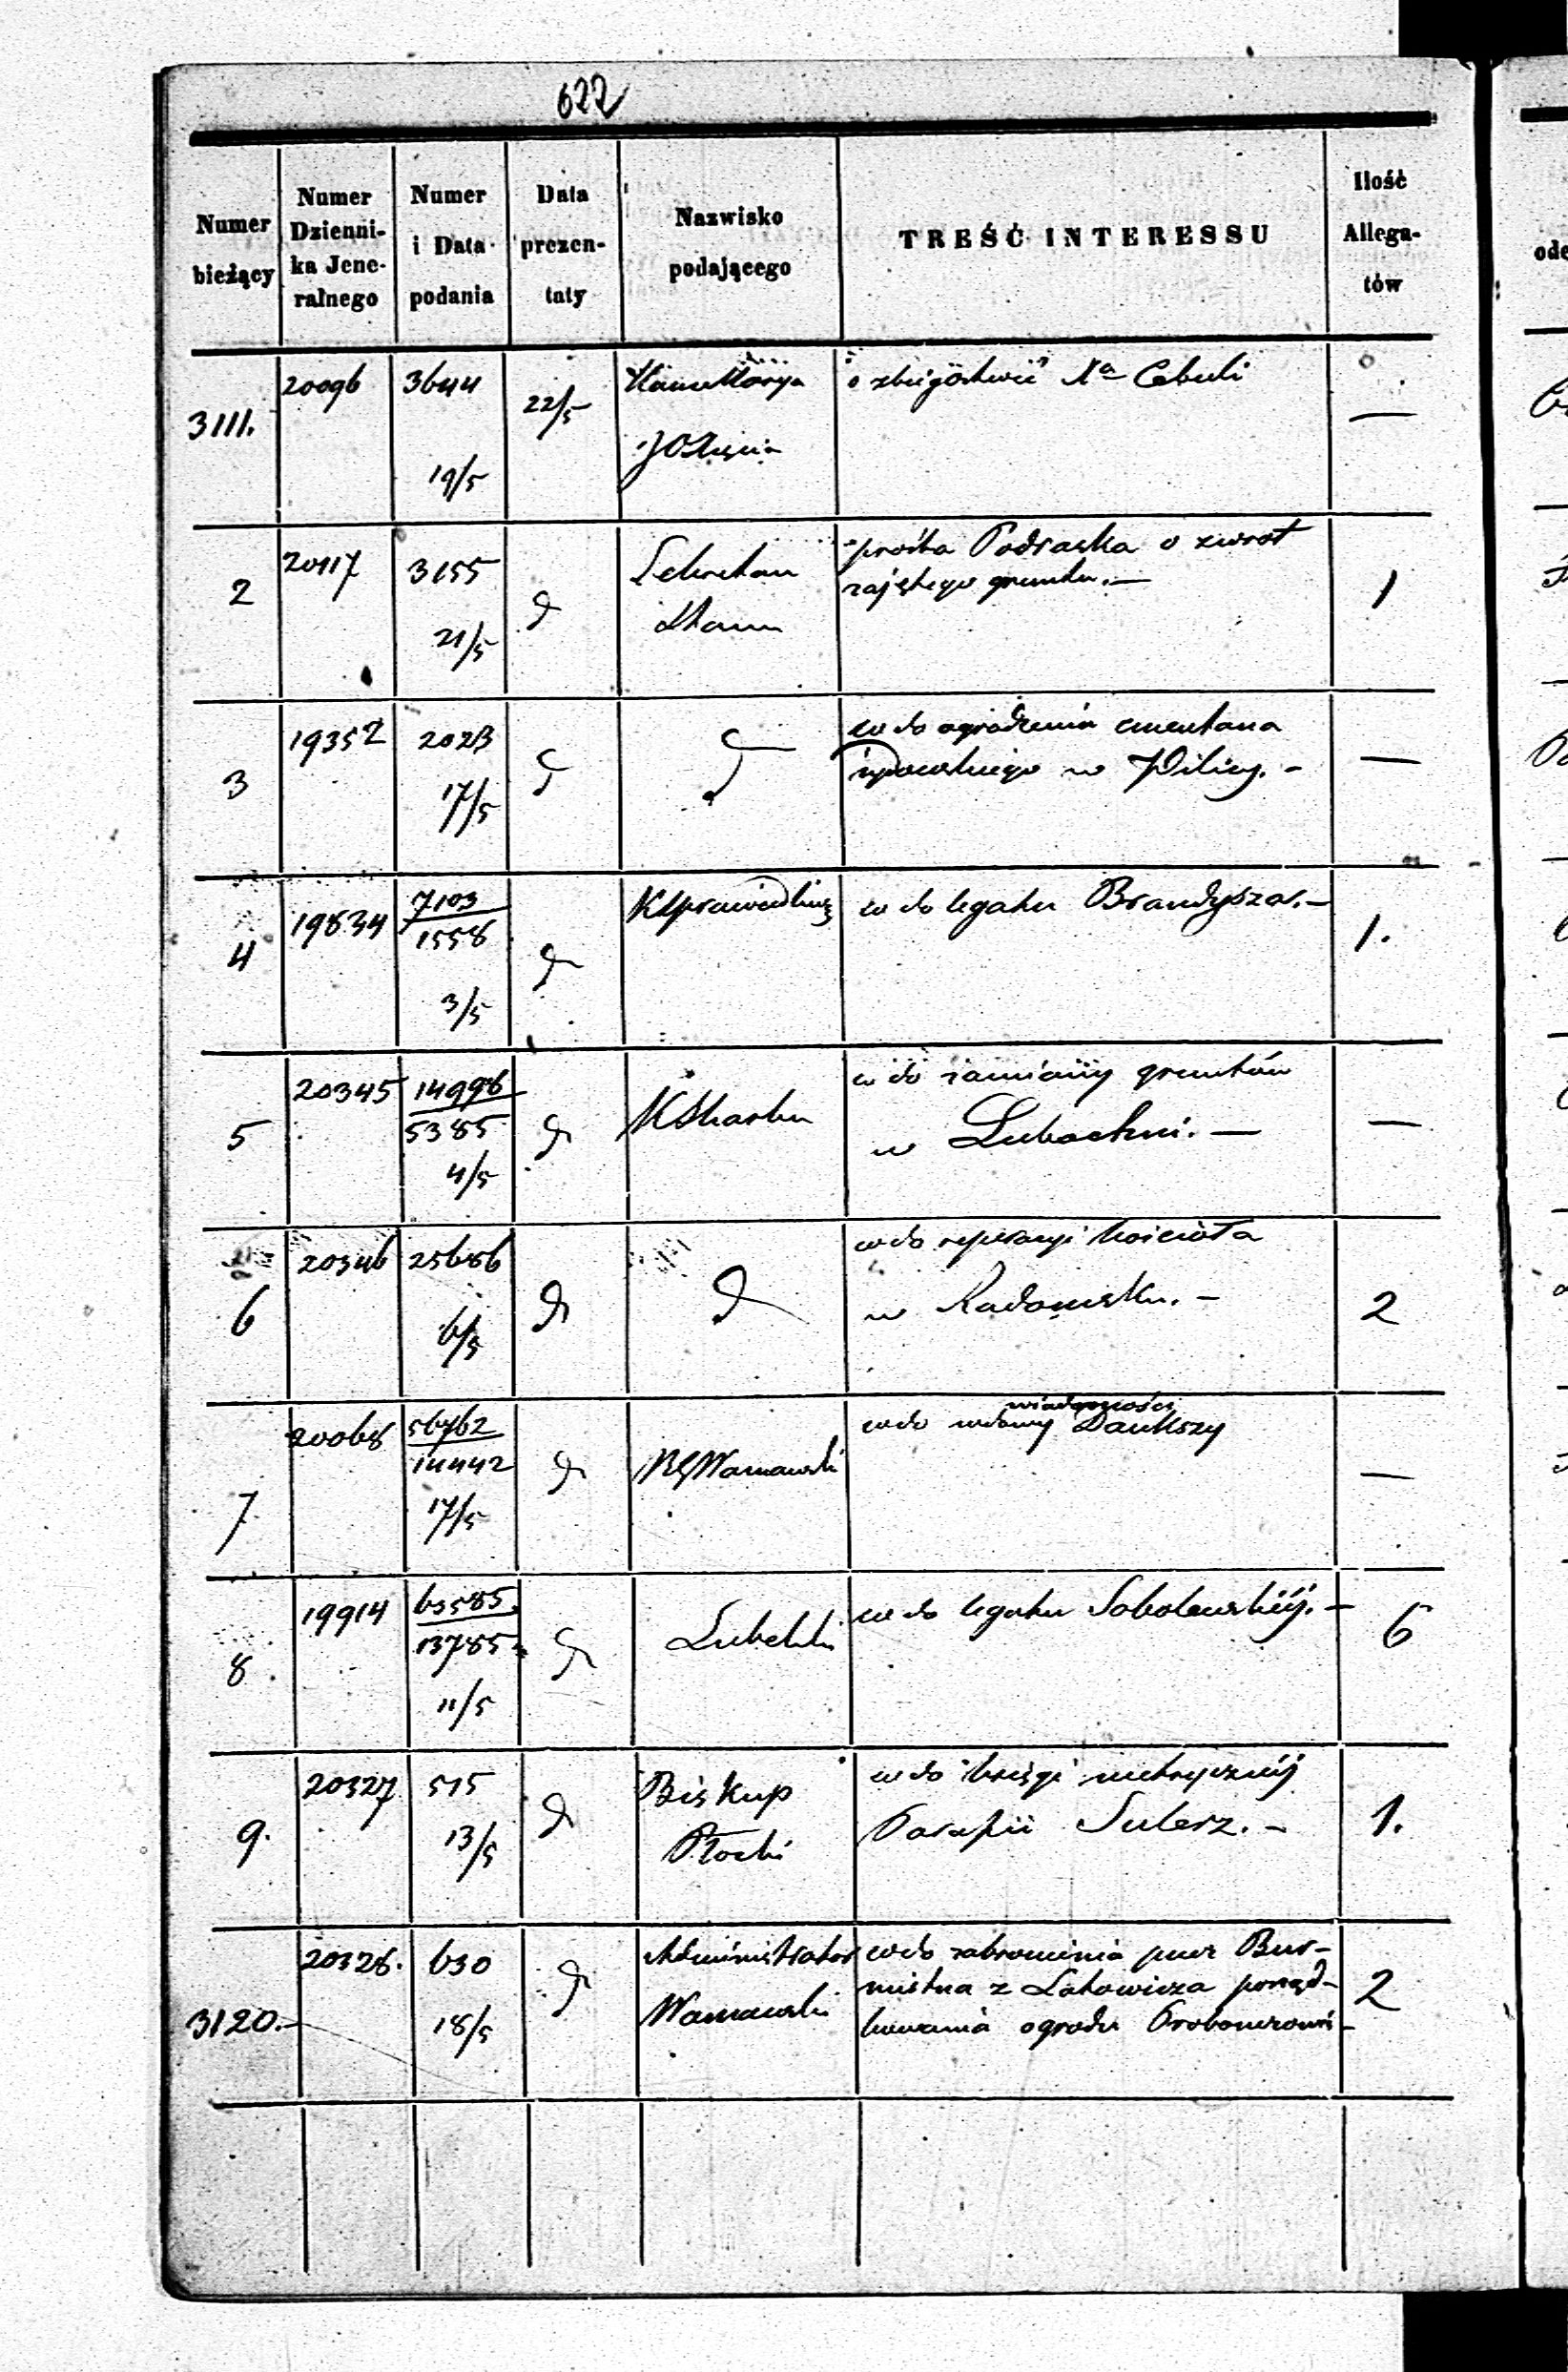 622
Numer bieżący
Numer Dzienni-
ka Jene-
ralnego
Numer
i Data
podania
Data
prezen-
taty
Nazwisko
podającego
TREŚĆ INTERESSU
Ilość
Allega-
tów
3111. 20096 3644 19/5 22/5 o X<sup>a</sup> Cebuli —
2 20117 3155 21/5 Sekretarz Stanu prośba Podraska o zwrot
zajętego gruntu. — 1
3 19352 2023 17/5 w do ogrodzenia cmentarza
w Pilicy. — —
4 19834 7103
1558 3/5 KSprawiedliwoś w do legatu Brandysza. — 1.
5 20345 14998
5385 4/5 KSkarbu w do zamiany gruntów
w Lubochni. — —
6 20346 25686 6/5 w do reperacyi kościoła
w Radomsku. — 2
7 20068 56762
14442 17/5 RGWarszawski w do wiadomości Daukszy —
8 19914 63585
13785 11/5 Lubelski w do legatu Sobolewskiéj. — 6
9. 20327 515 13/5 Biskup
Płocki w do księgi metrycznéj
Parafii Sulerz. — 1.
3120. 20328. 630 18/5 Administrator
Warszawski w do zabronienia przez Bur-
mistrza z Latowicza porząd-
kowania ogrodu 2